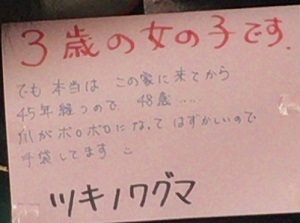 3歳の女の子です.
でも本当は この家に来てから
45年経つので 48歳……
爪がボロボロになって はずかしいので
手袋してます
ツキノワグマ